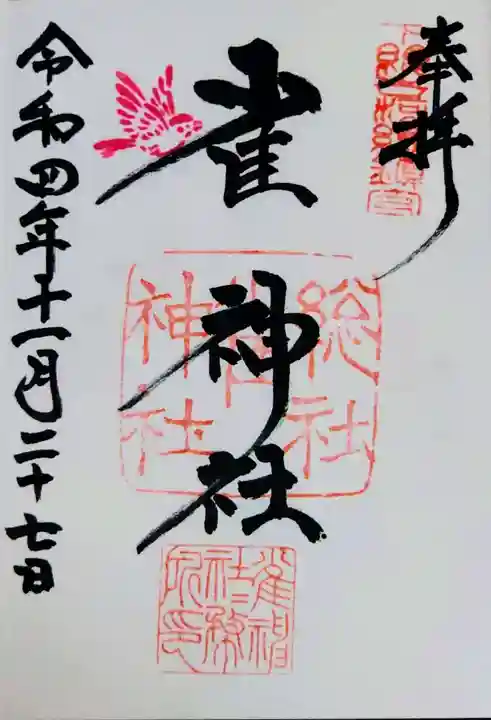 奉拝
雀神社
総社
雀
神社
雀神
社務
所印
令和四年十一月二十七日